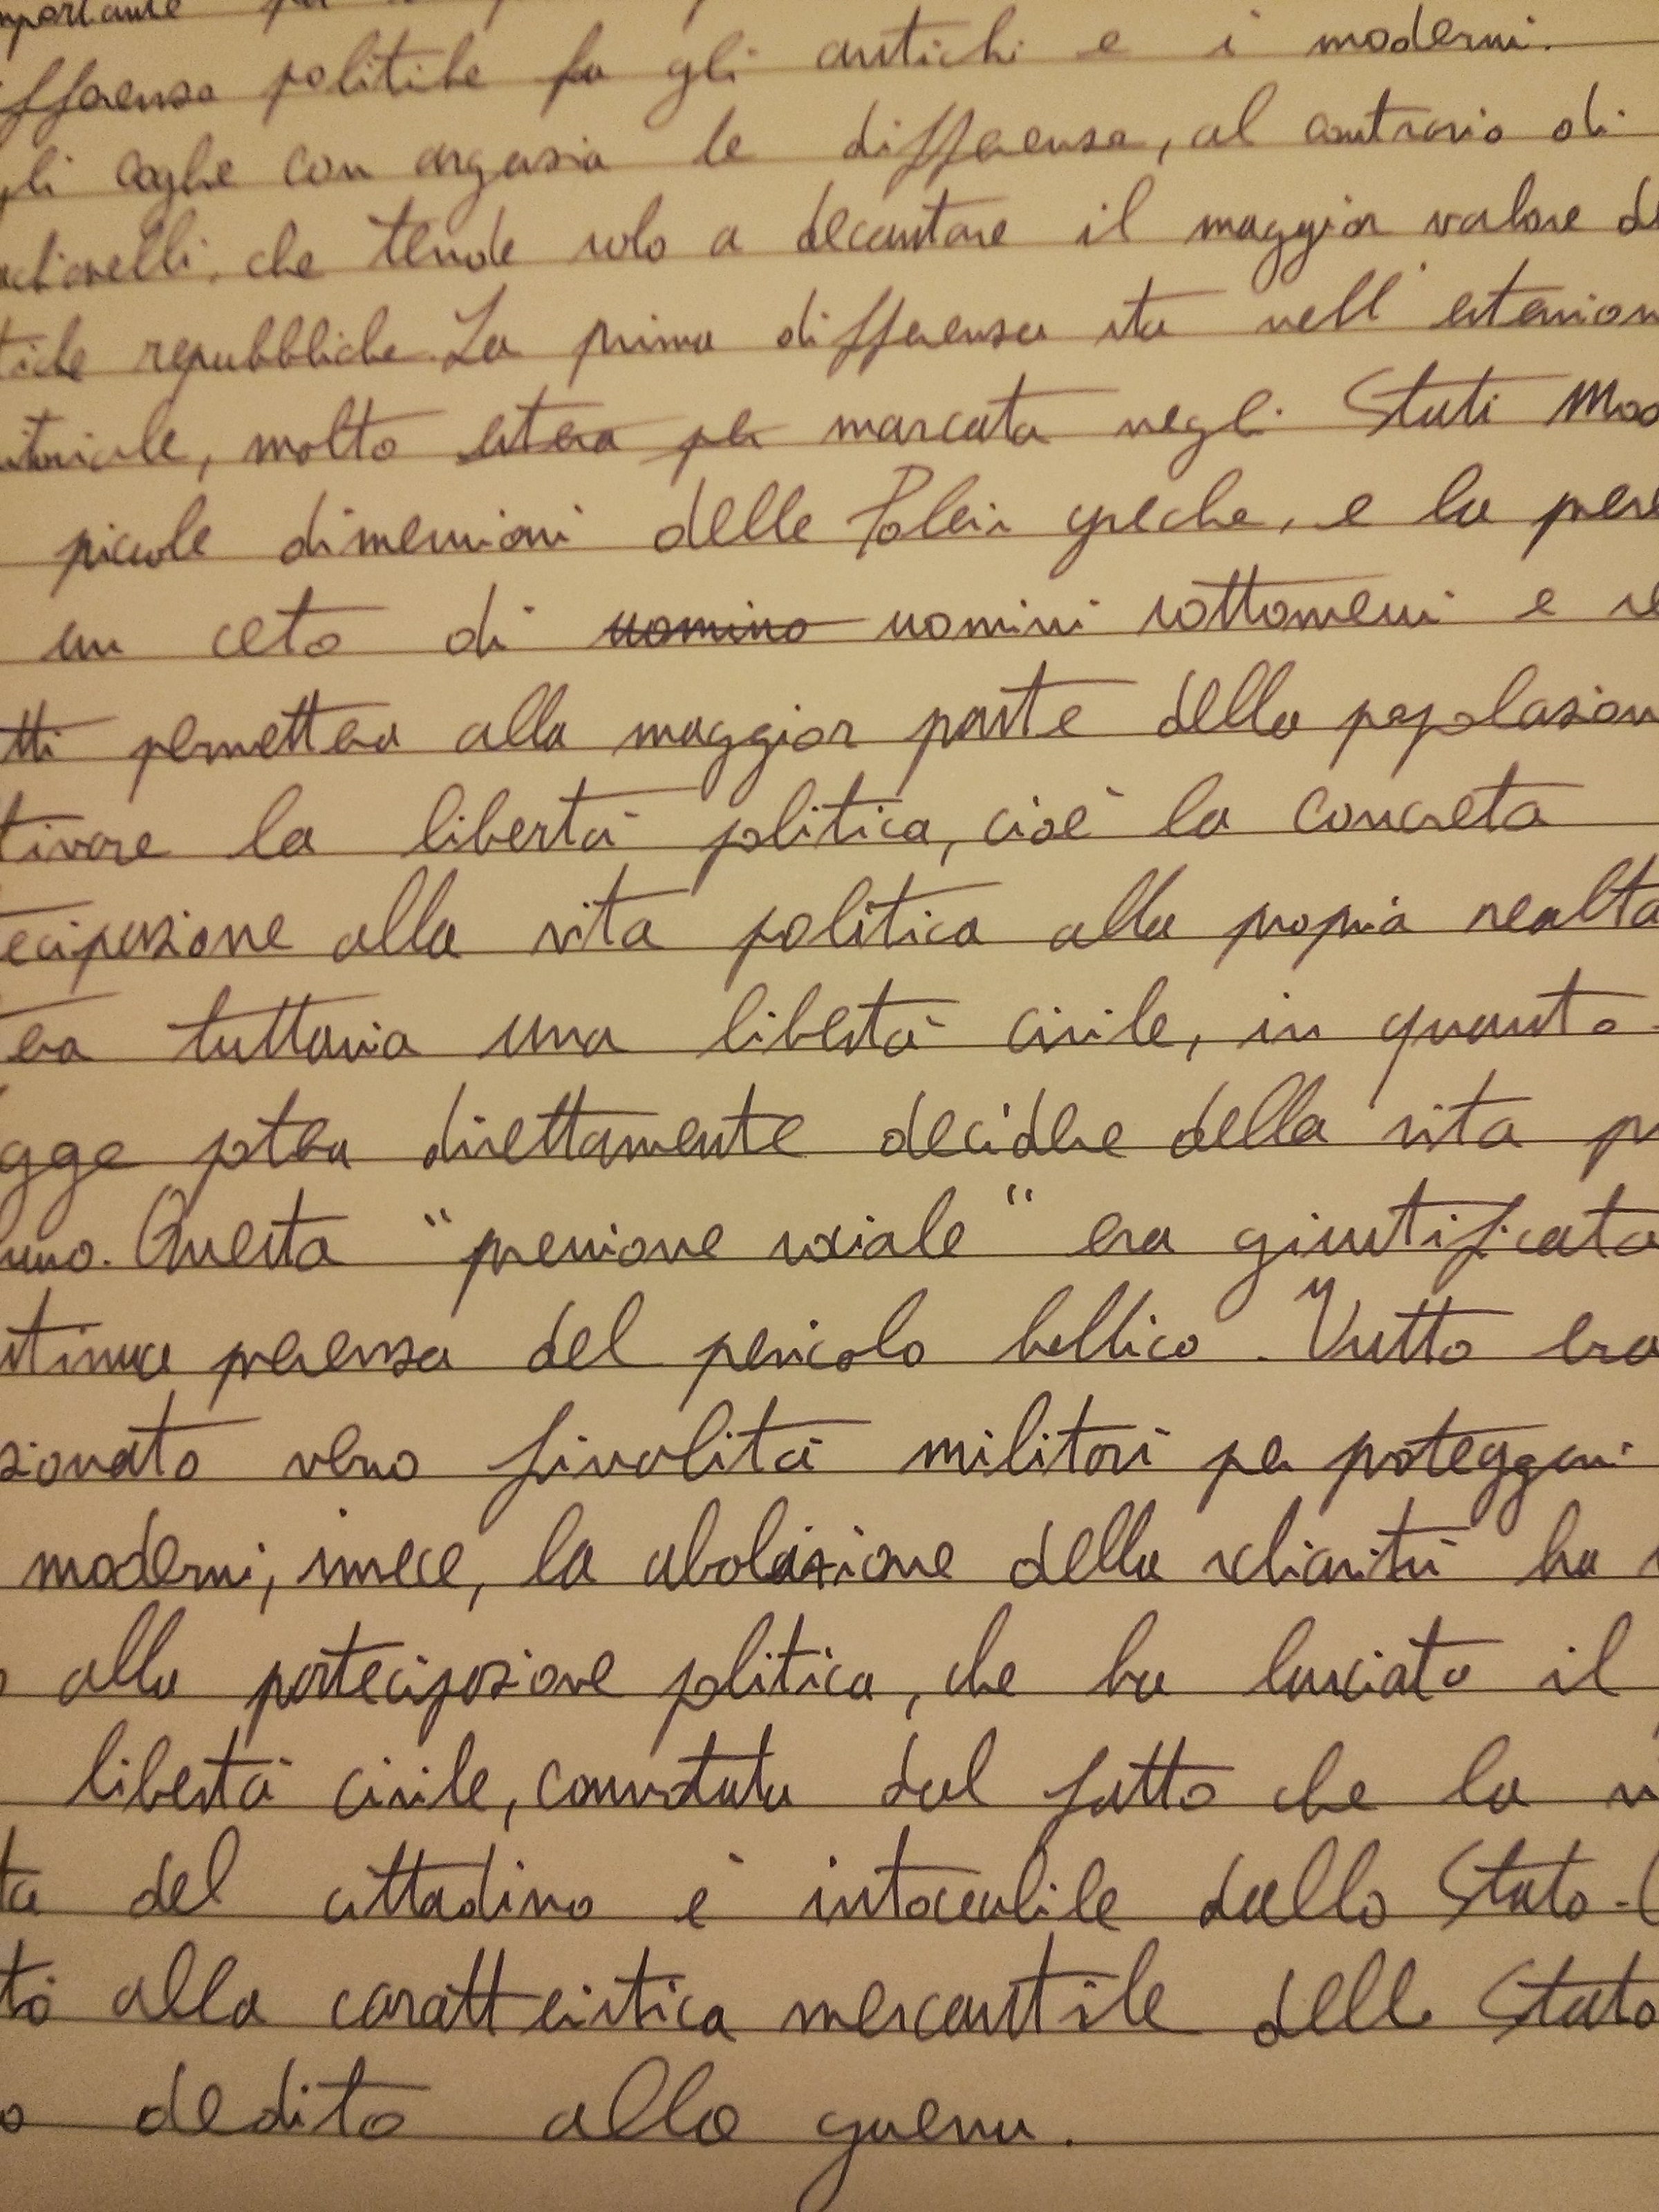 importante per
fferenze politiche fra gli antichi e i moderni.
gli coglie con arguzia le differenze, al contrario di
achiavelli, che tende solo a decantare il maggior valore de
tiche repubbliche. La prima differenza sta nell'estension
itoriale, molto estesa per marcata negli Stati Mod
piccole dimensioni delle Poleis greche, e la pres
un ceto di uomino uomini sottomessi e re
tti permetteva alla maggior parte della popolazion
tivare la libertà politica, cioè la concreta
tecipazione alla vita politica alla propria realtà
era tuttavia una libertà civile, in quanto
gge potea direttamente decidere della vita pr
uno. Questa "pressione sociale" era giustificata
ntinua presenza del pericolo bellico. Tutto era
zionato verso finalità militari per proteggersi
moderni, invece, la abolizione della schiavitù ha
o alla partecipazione politica, che ha lasciato il
libertà civile, connotata dal fatto che la vi
ta del cittadino è intoccabile dallo Stato. (
tò alla caratteristica mercantile dello Stato
o dedito alla guerra.